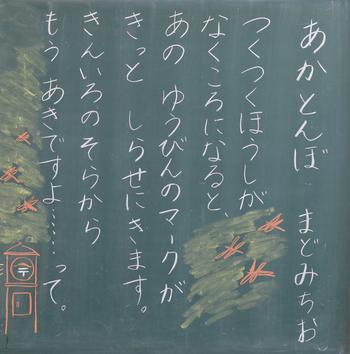 あかとんぼ　まどみちお
つくつくほうしが
なくころになると、
あの　ゆうびんのマークが
きっと　しらせにきます。
きんいろのそらから
もう　あきですよ……って。
〒